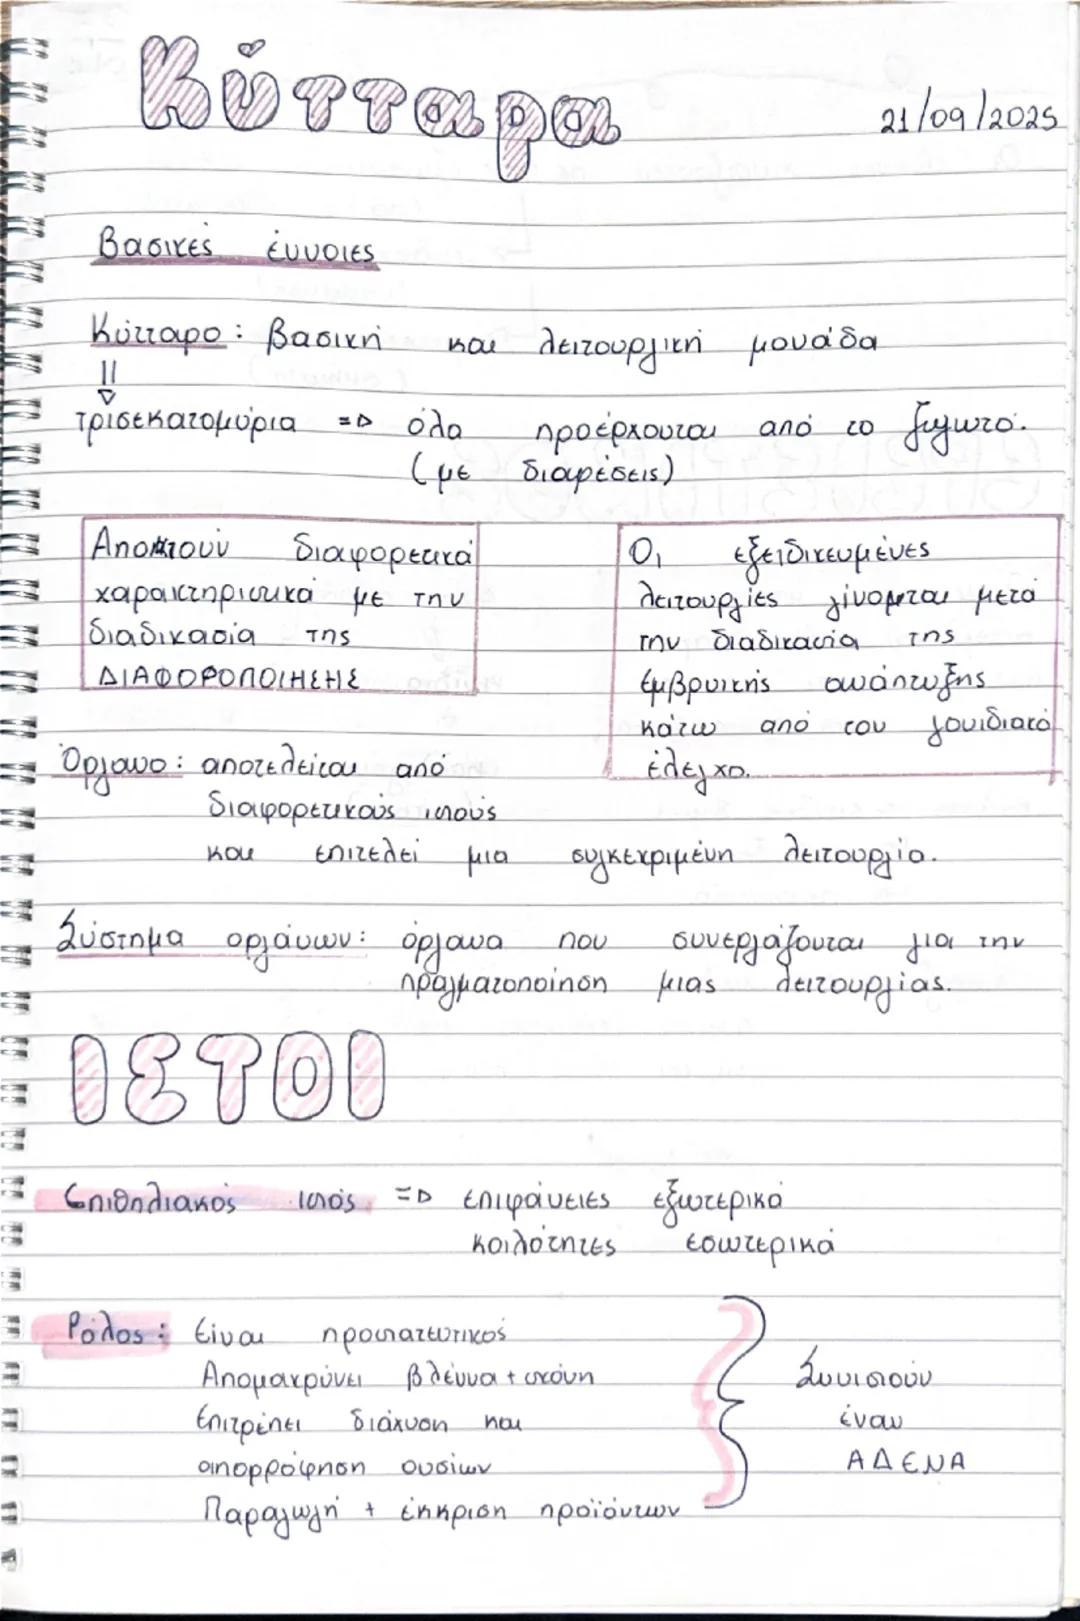 Κύτταρα
21/09/2025
Βασικές έννοιες
Κύτταρο : Βασική και λειτουργική μονάδα
τρισεκατομύρια => όλα προέρχονται από το ζυγωτό.
(με διαιρέσεις)
Αποκτούν διαφορετικά
χαρακτηριστικά με την
διαδικασία της
ΔΙΑΦΟΡΟΠΟΙΗΣΗΣ
Οι εξειδικευμένες
λειτουργίες γίνονται μετά
την διαδικασία της
εμβρυικής ανάπτυξης
κάτω από τον γονιδιακό
έλεγχο.
Όργανο : αποτελείται από
διαφορετικούς ιστούς
και επιτελεί μια συγκεκριμένη λειτουργία.
Σύστημα οργάνων : όργανα που συνεργάζονται για την
πραγματοποίηση μιας λειτουργίας.
ΙΣΤΟΙ
Επιθηλιακός ιστός => επιφάνειες εξωτερικά
κοιλότητες εσωτερικά
Ρόλος : Είναι προστατευτικός
Απομακρύνει βλέννα + σκόνη
Επιτρέπει διάχυση και
απορρόφηση ουσίων
Παραγωγή + έκκριση προϊόντων
Συνιστούν
έναν
ΑΔΕΝΑ